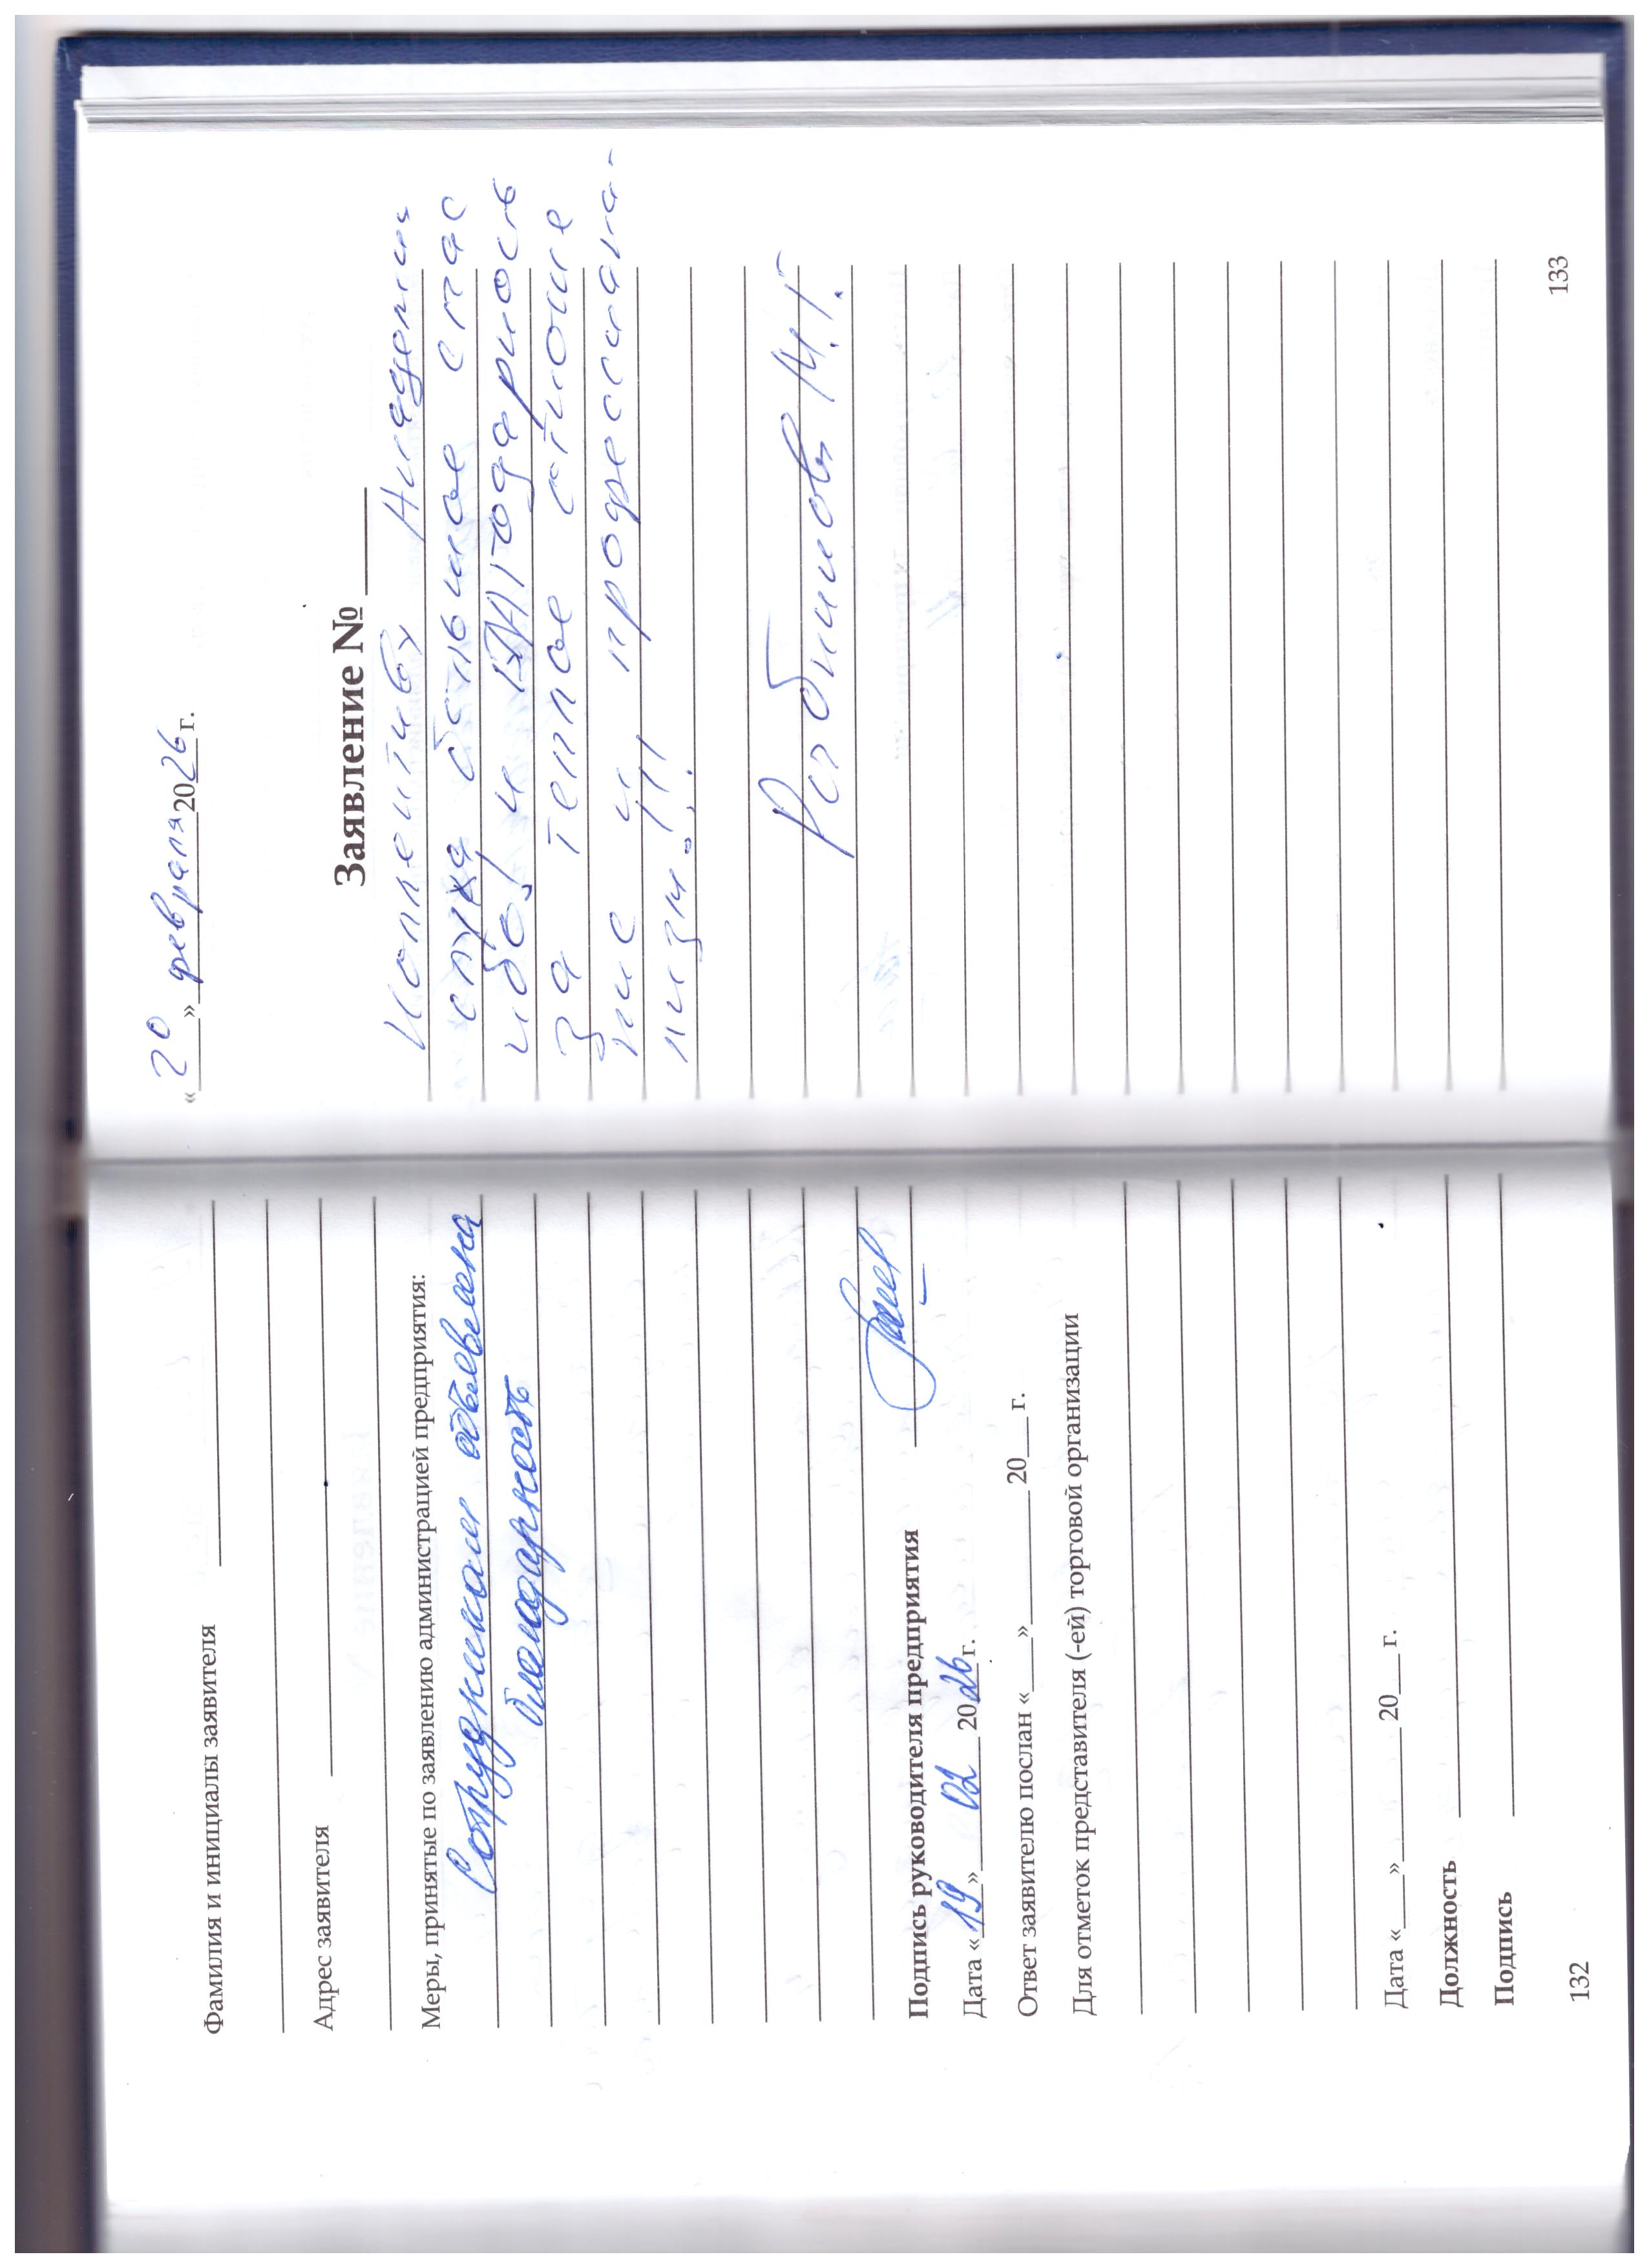 Фамилия и инициалы заявителя
Адрес заявителя
Меры, принятые по заявлению администрацией предприятия:
Сотрудникам объявлена
благодарность
Подпись руководителя предприятия
Дата «19» 02 2026 г.
Ответ заявителю послан «___» ______ 20__ г.
Для отметок представителя (-ей) торговой организации
Дата «___» ______ 20__ г.
Должность
Подпись
132
«20» февраля 2026 г.
Заявление № ____
Коллективу
слуха большое спас
ибо! и благодарность
за теплое отноше
ние и профессиона-
лизм!!!
133